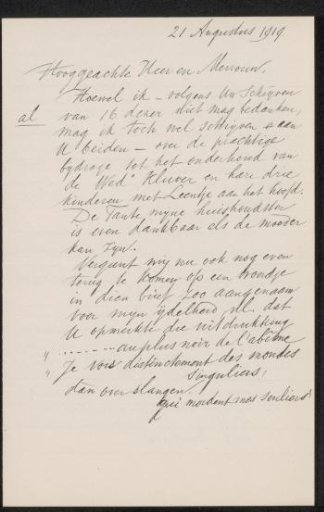 21 Augustus 1919
Hooggeachte Heer en Mevrouw.
Hoewel ik – volgens Uw schrijven
al
van 16 dezer niet mag bedanken,
mag ik toch wel schrijven aan
U beiden – over de prachtige
bydrage tot het onderhoud van
de Wede Kluver en hare drie
kinderen met Leentje aan het hoofd.
De Tante myne huishoudster
is even dankbaar als de moeder
kan zyn.
Vergunt my nu ook nog even
terug te komen op een
in dien brief zoo aangenaam
voor myn ydelheid nl. dat
U opmerkte die uitdrukking
" ........ au plus noir de l'abîme
" Je vois distinctement des mondes
singuliers,
dan over slangen.
qui mordent mes souliers"